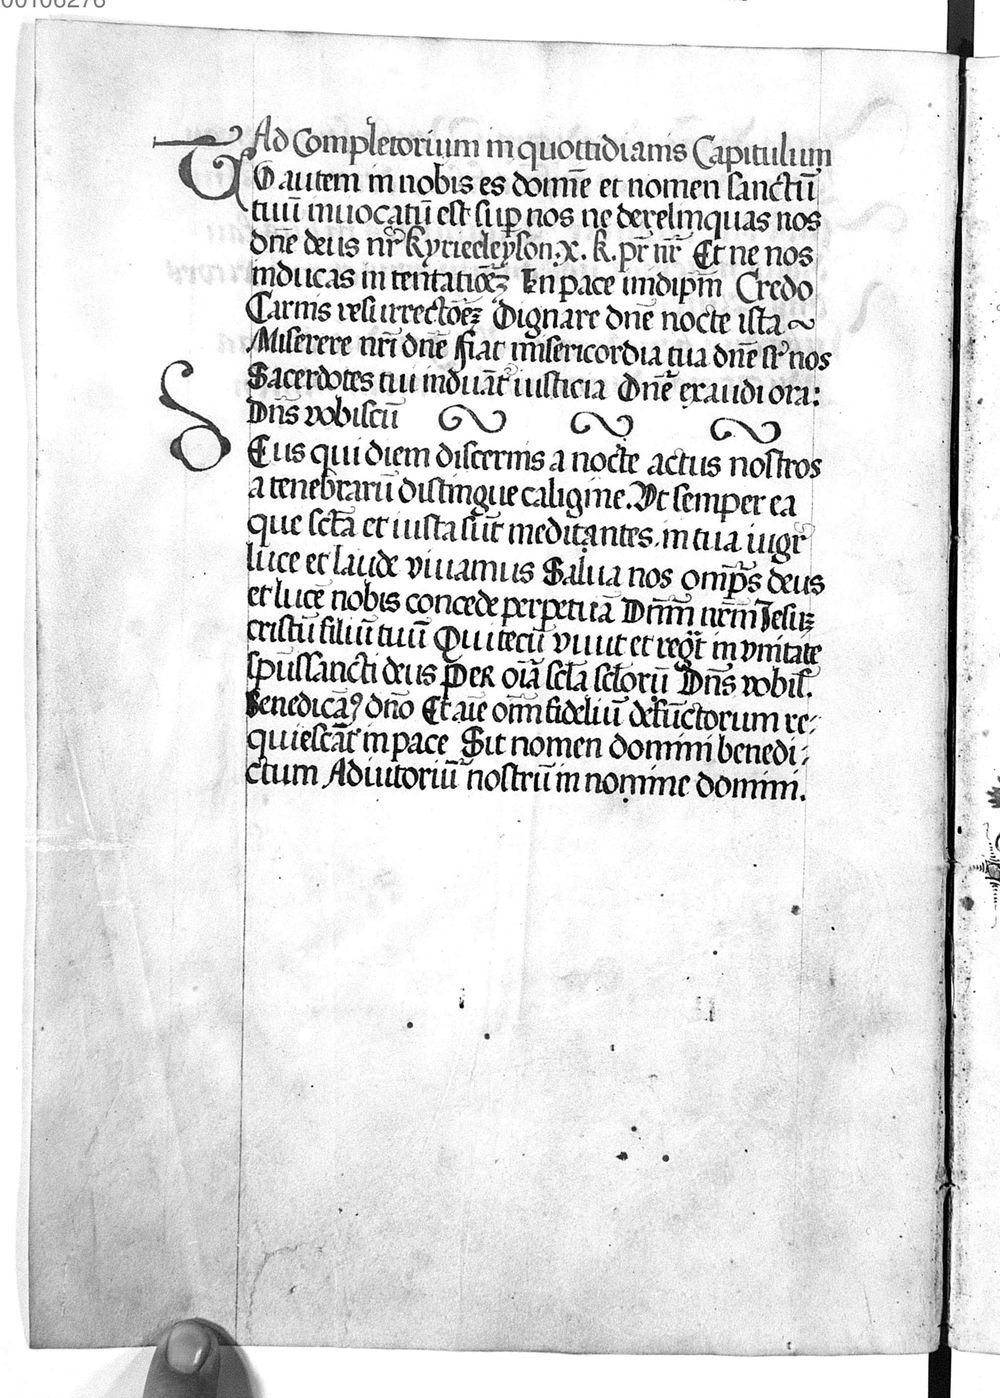 00106276
Ad Completorium in quottidianis Capitulum
TU autem in nobis es domīe et nomen sanctū
tuū inuocatū est sup nos ne derelinquas nos
dn̄e deus nr̄ kyrieeleyson. x. k. pr̄ nr̄ Et ne nos
inducas in tentatiōeꝫ In pace in idip̄m Credo
Carnis resurrectōeꝫ Dignare dn̄e nocte ista
Miserere nr̄i dn̄e fiat misericordia tua dn̄e sr̄ nos
Sacerdotes tui induāt iusticia Dn̄e exaudi ora:
Dn̄s vobiscū
DEus qui diem discernis a nocte actus nostros
a tenebrarū distingue caligine. Ut semper ea
que sctā et iusta sūt meditantes. in tua iugr̄
luce et laude viuamus Salua nos omp̄s deus
et lucē nobis concede perpetuā Dn̄m nr̄m Jesuꝫ
cristū filiū tuū Qui tecū viuit et regt̄ in vnitate
spūssancti deus PER oīa sctā sctōrū Dn̄s vobiſ.
Benedicāꝯ dn̄o Et aīe om̄ fideliū defūctorum re-
quiescāt in pace Sit nomen domini benedi-
ctum Adiutoriū nostrū in nomine domini.